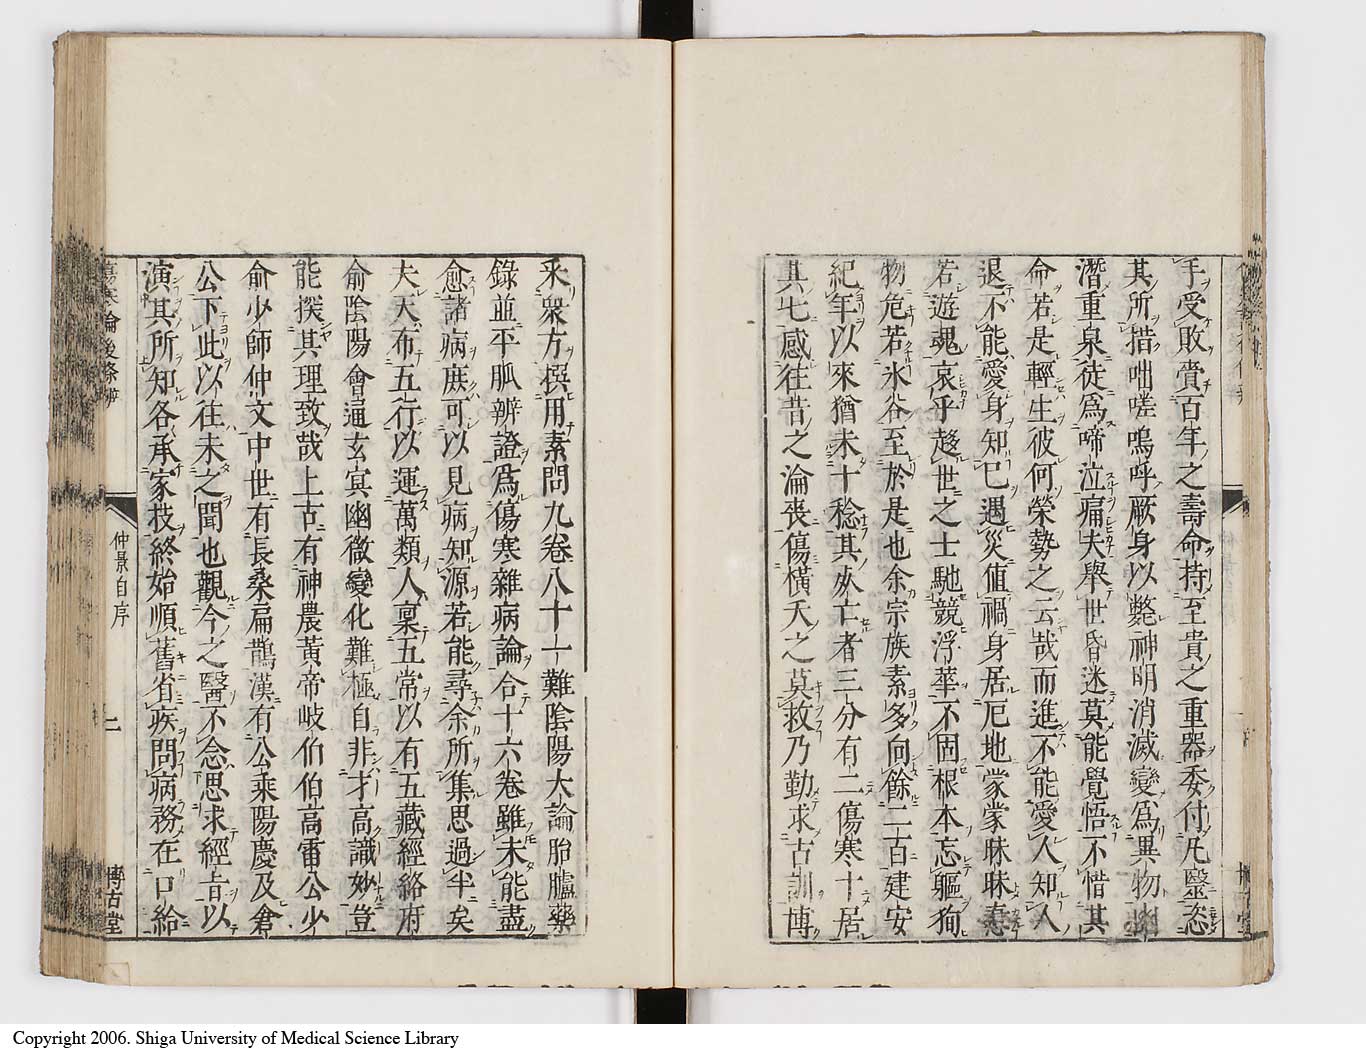 手受敗賷百年之壽命持至貴之重器委付凡毉恣
其所措咄嗟嗚呼厥身以斃神明消滅變爲異物幽
潛重泉徒爲啼泣痛夫舉世昏迷莫能覺悟不惜其
命若是輕生彼何榮勢之云哉而進不能愛人知人
退不能愛身知己遇災值禍身居厄地蒙蒙昧昧惷
若遊魂哀乎趍世之士馳競浮華不固根本忘軀狥
物危若氷谷至於是也余宗族素多向餘二百建安
紀年以來猶未十稔其死亡者三分有二傷寒十居
其七感往昔之淪喪傷橫夭之莫救乃勤求古訓博
采衆方撰用素問九卷八十一難陰陽大論胎臚藥
錄並平脉辨證爲傷寒雜病論合十六卷雖未能盡
愈諸病庶可以見病知源若能尋余所集思過半矣
夫天布五行以運萬類人稟五常以有五藏經絡府
俞陰陽會通玄冥幽微變化難極自非才高識妙豈
能探其理致哉上古有神農黃帝岐伯伯高雷公少
俞少師仲文中世有長桑扁鵲漢有公乘陽慶及倉
公下此以往未之聞也觀今之醫不念思求經旨以
演其所知各承家技終始順舊省疾問病務在口給
傷寒論後條辨
仲景自序
二
博古堂
Copyright 2006. Shiga University of Medical Science Library